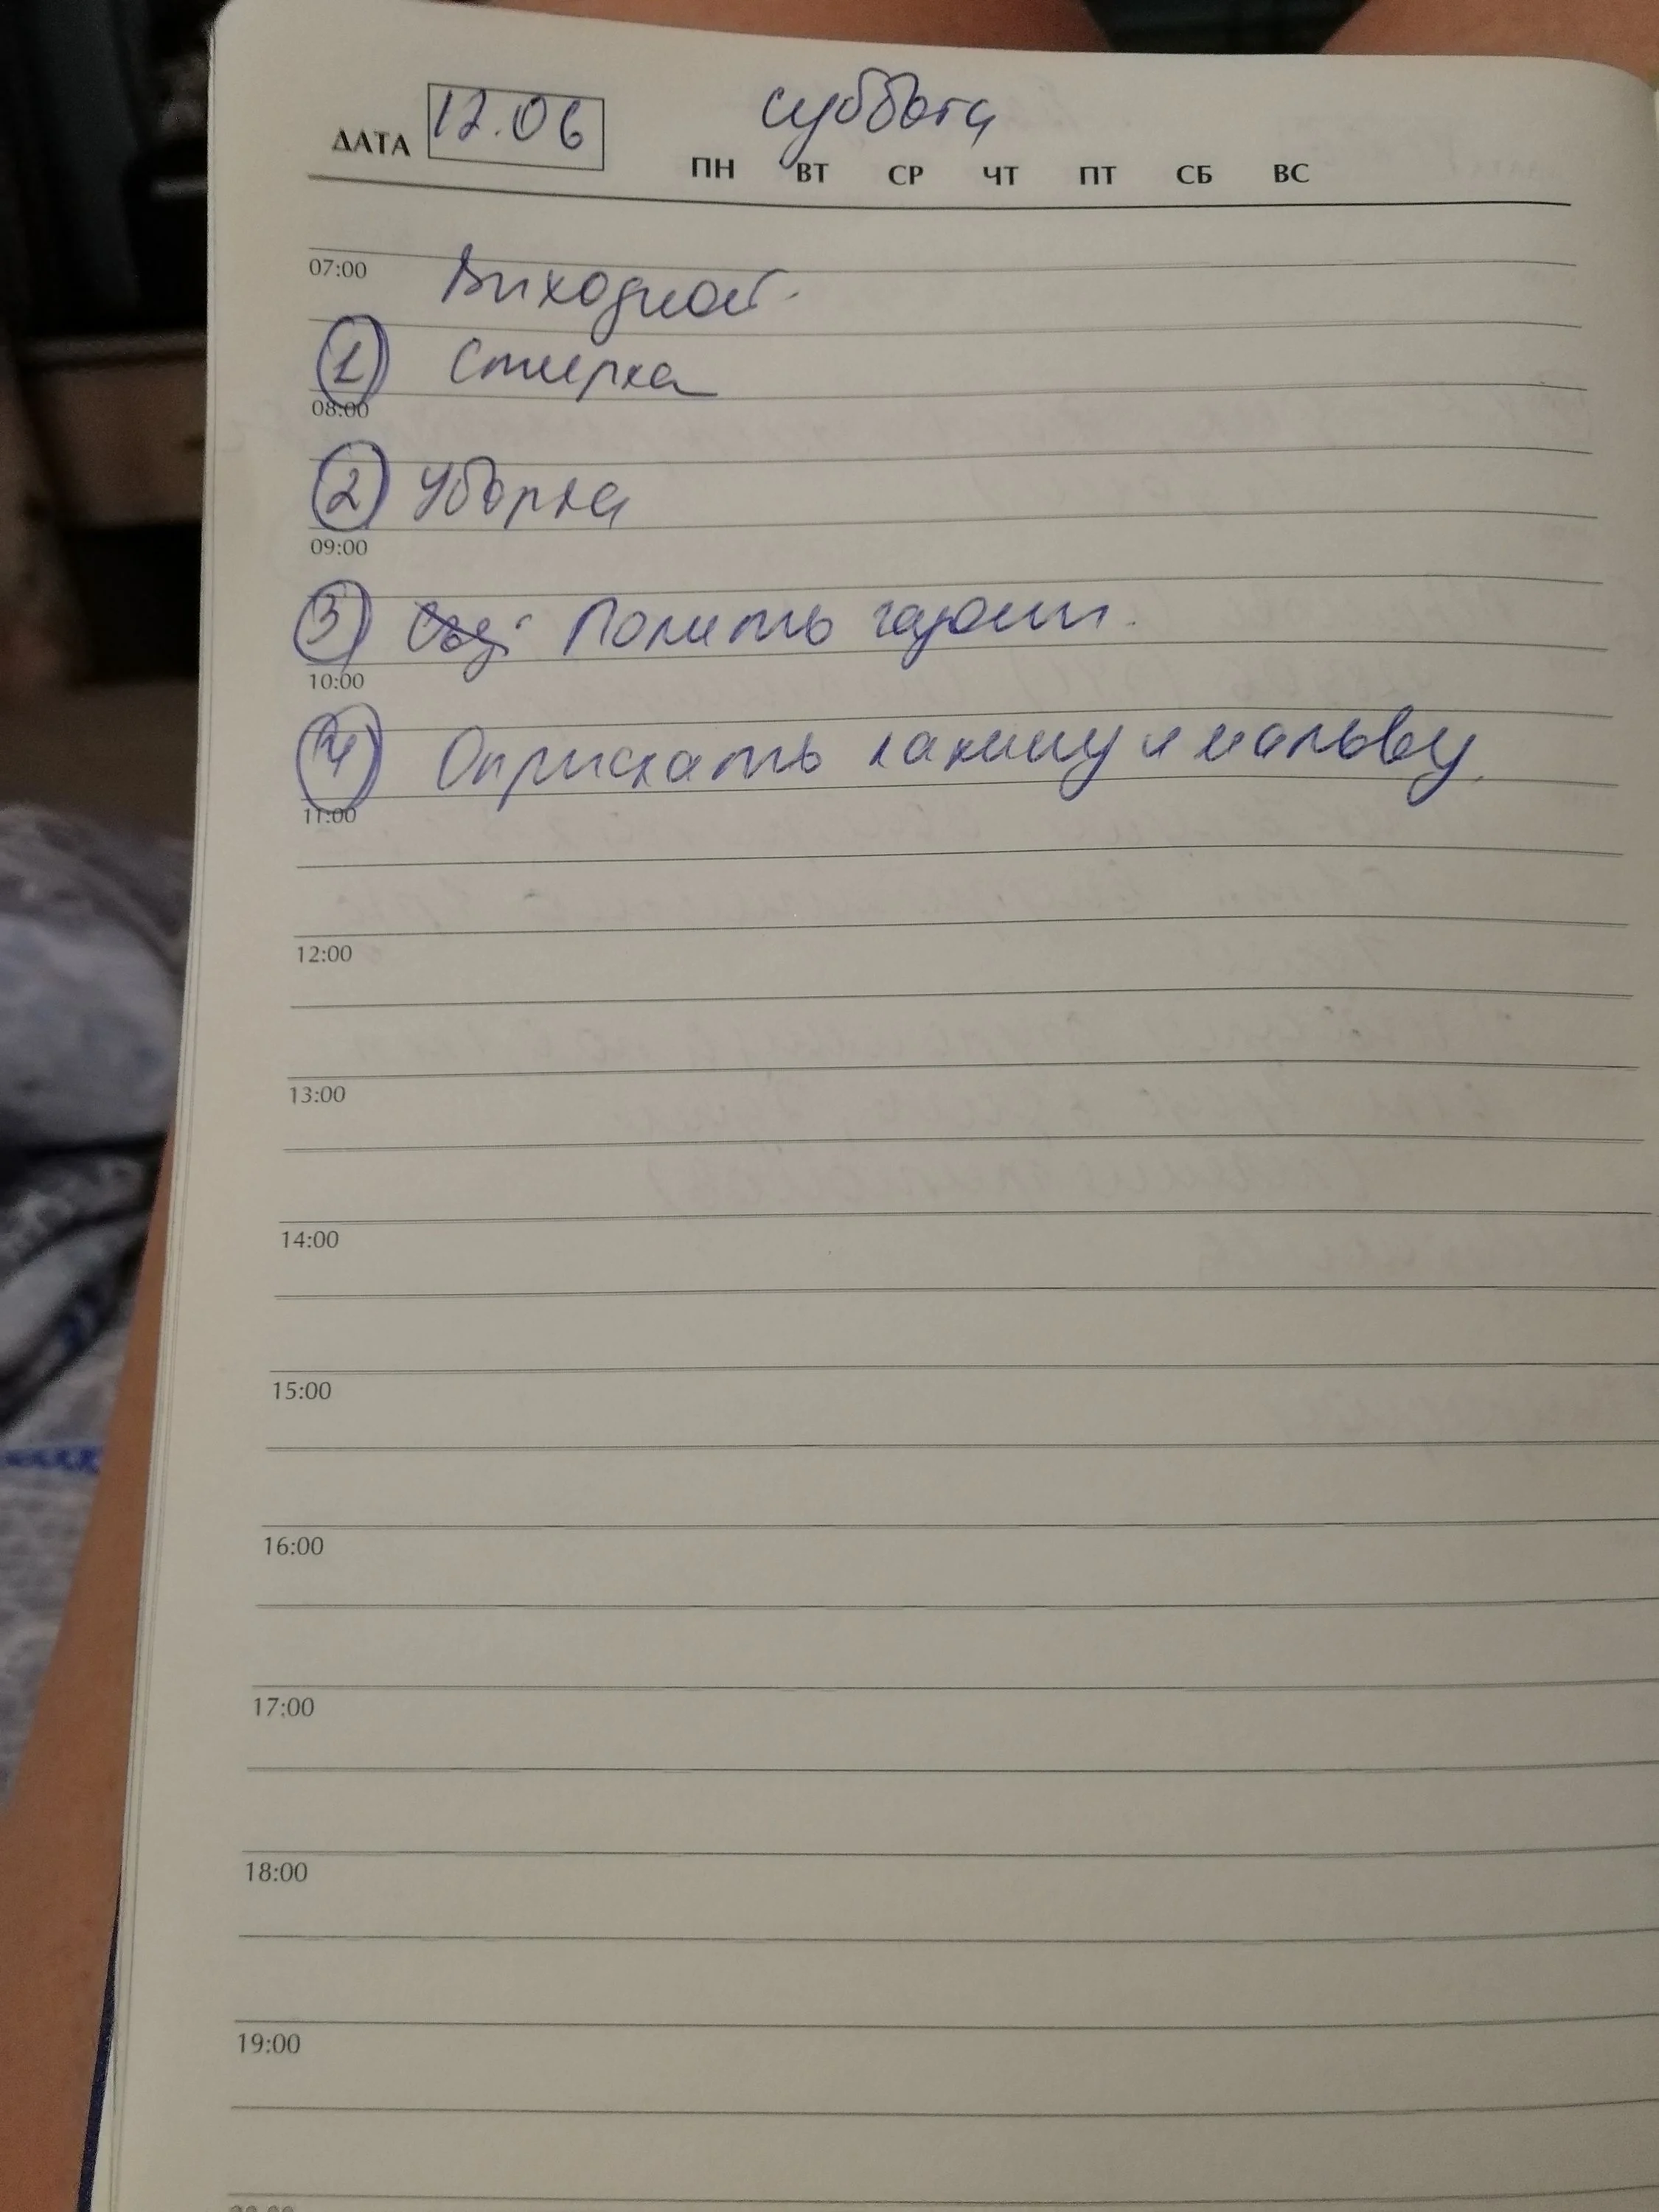 суббота
ДАТА 12.06
ПН ВТ СР ЧТ ПТ СБ ВС
07:00 Виходной.
1 Стирка
08:00
2 Уборка
09:00
3 Полить газон
10:00
4 Оприскать калину и мальву.
11:00
12:00
13:00
14:00
15:00
16:00
17:00
18:00
19:00